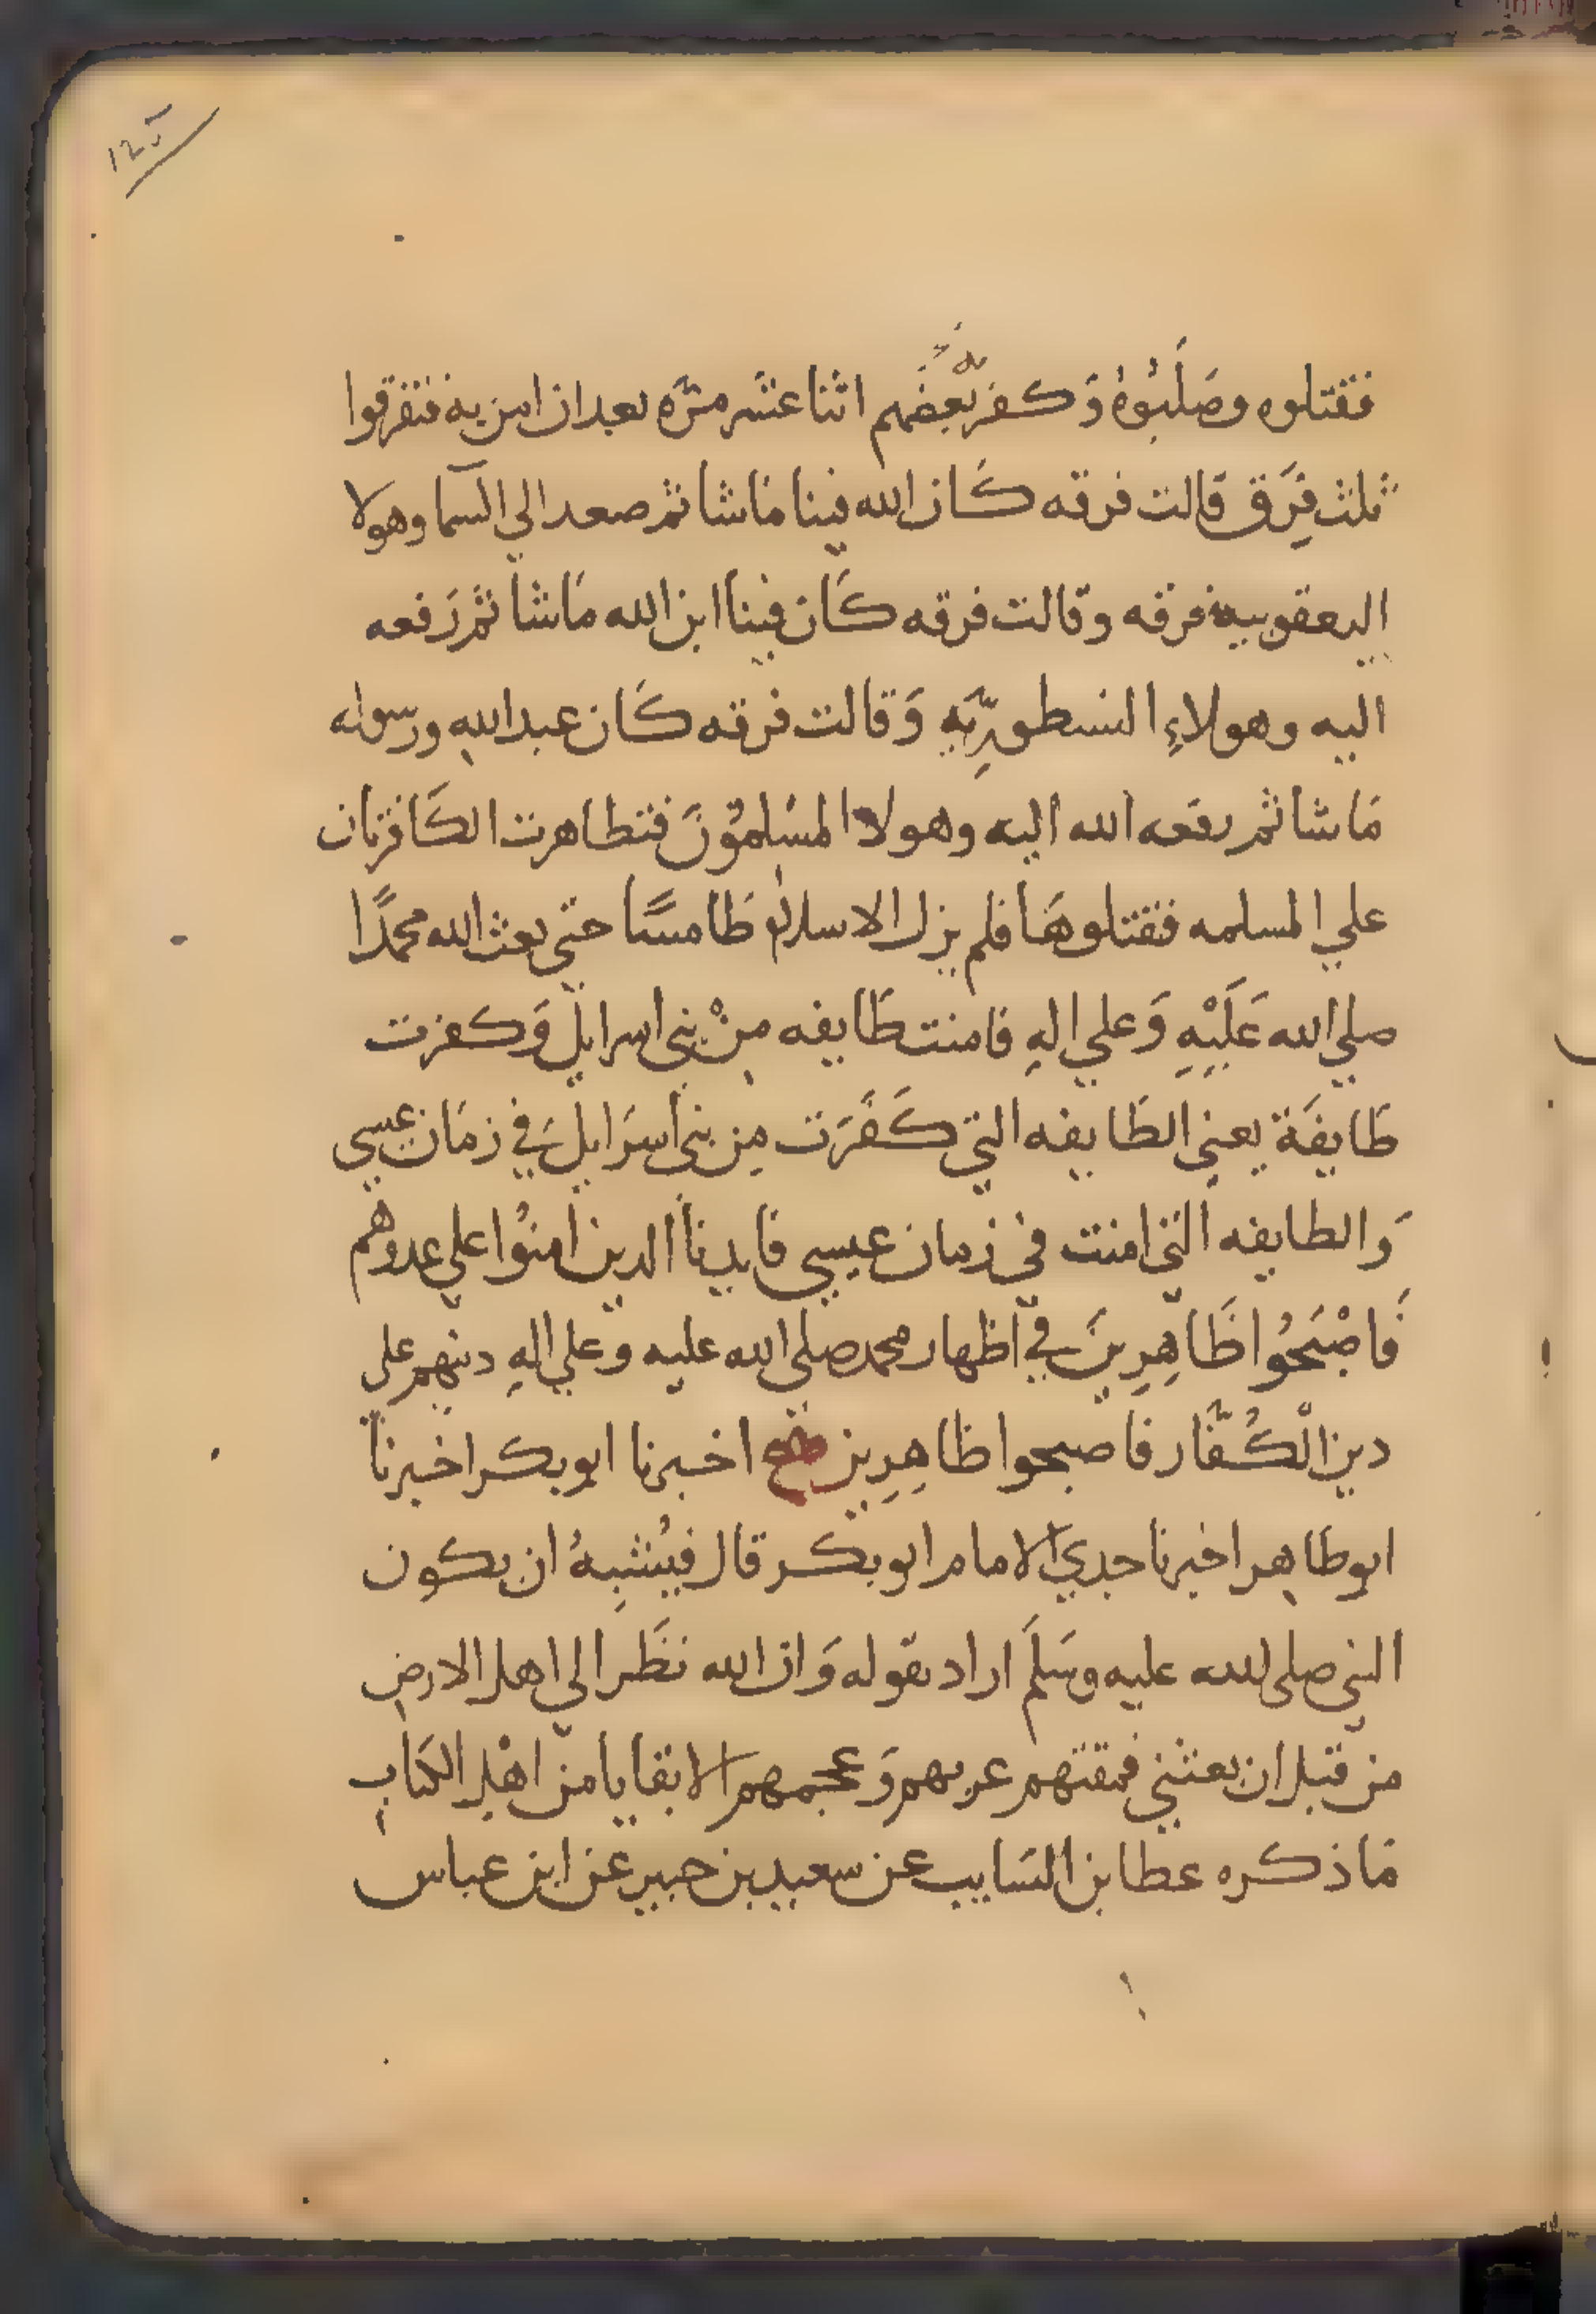 ١٢٥
فقتلوه وصَلَبُوهُ وَكفر بَّعضهم اثنا عشر مرَّه بعد ان امن به فتفرقوا
ثلث فِرَق قالت فرقه كَان الله فينا مَا شا ثم صعد الى السمآ وهولا
اليعقوبيه فرقه وقالت فرقه كَان فينا ابن الله مَا شا ثم رَفعه
اليه وهولاءِ النسطورِيَّه وَقالت فرقه كَان عبد اللهِ ورسوله
مَا شا ثم رفعه الله اليه وهولا المسْلموُنَ فتطاهرت الكَافرتان
علي المسلمه فقتلوهَا فلم يزل الاسلامُ طَامسًا حتي بعث الله محمدًا
صلي الله عَلَيْهِ وَعلي الهِ فامنت طَايفه مِنْ بني اسرايل وَكفرت
طَايفَة يعني الطَايفه التي كَفَرَت مِن بني اسرَايلَ في زمَان عيسي
وَالطايفه التي امنت في زمان عيسي فايدنا الدين امنوُا علي عدوهم
فَاصْبَحُوا ظَاهِرِينَ في اظهار محمد صلي الله عليه وعلي الهِ دينهم علي
دين الْكُفَّار فاصبحوا ظاهِرِين اخبرنا ابو بكر اخبرنا
ابو طَاهِر اخبرنا جدي الامام ابو بكر قال فيُشْبِهُ ان يكون
النبي صلى الله عليه وسَلَم اراد بقوله وَان الله نَظَر الي اهل الارضِ
من قبل ان يعثني فمقتهم عربهم وَعجمهم الا بقايا من اهْلِ الكتَابِ
مَا ذكره عطا بن السَايب عن سعيد بن جبير عن ابن عباس